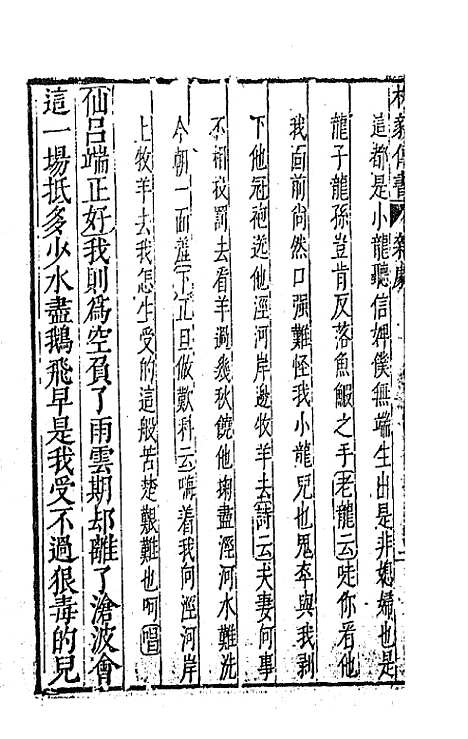 柳毅傳書　雜劇
這都是小龍聽信婢僕無端生出是非媳婦也是
龍子龍孫豈肯反落魚鰕之手老龍云哇你看他
我面前尚然口强難怪我小龍兒也鬼李與我剥
下他冠袍送他涇河岸邊牧羊去詩云夫妻何事
不相役罰去看羊過幾秋饒他掬盡涇河水難洗
今朝一面羞下正旦做歎科云嗨着我向涇河岸
上牧羊去我怎生受的這般苦楚艱難也呵唱
仙吕端正好我則爲空負了雨雲期却離了滄波會
這一場抵多少水盡鵝飛早是我受不過狠毒的兒